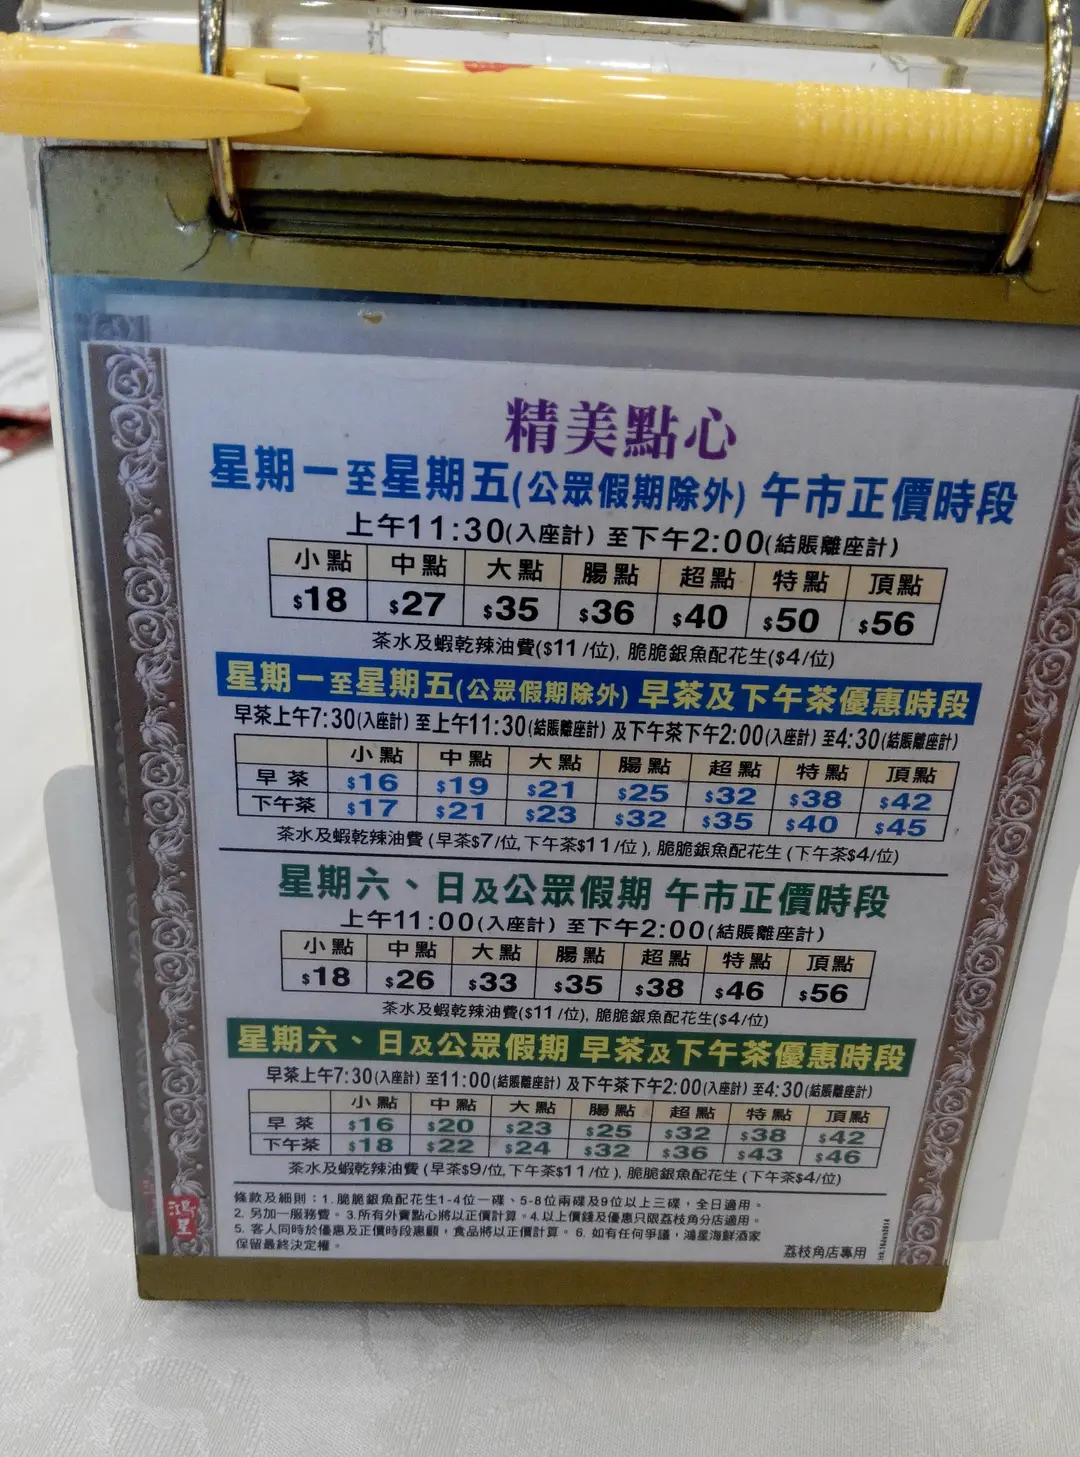 精美點心
星期一至星期五(公眾假期除外) 午市正價時段
上午11:30(入座計) 至下午2:00(結賬離座計)
小點 中點 大點 腸點 超點 特點 頂點
$18 $27 $35 $36 $40 $50 $56
茶水及蝦乾辣油費($11/位), 脆脆銀魚配花生($4/位)
星期一至星期五(公眾假期除外) 早茶及下午茶優惠時段
早茶上午7:30(入座計) 至上午11:30(結賬離座計) 及下午茶下午2:00(入座計) 至4:30(結賬離座計)
小點 中點 大點 腸點 超點 特點 頂點
早茶 $16 $19 $21 $25 $32 $38 $42
下午茶 $17 $21 $23 $32 $35 $40 $45
茶水及蝦乾辣油費 (早茶$7/位, 下午茶$11/位), 脆脆銀魚配花生 (下午茶$4/位)
星期六、日及公眾假期 午市正價時段
上午11:00(入座計) 至下午2:00(結賬離座計)
小點 中點 大點 腸點 超點 特點 頂點
$18 $26 $33 $35 $38 $46 $56
茶水及蝦乾辣油費($11/位), 脆脆銀魚配花生($4/位)
星期六、日及公眾假期 早茶及下午茶優惠時段
早茶上午7:30(入座計) 至11:00(結賬離座計) 及下午茶下午2:00(入座計) 至4:30(結賬離座計)
小點 中點 大點 腸點 超點 特點 頂點
早茶 $16 $20 $23 $25 $32 $38 $42
下午茶 $18 $22 $24 $32 $36 $43 $46
茶水及蝦乾辣油費 (早茶$9/位, 下午茶$11/位), 脆脆銀魚配花生 (下午茶$4/位)
條款及細則：1. 脆脆銀魚配花生1-4位一碟、5-8位兩碟及9位以上三碟，全日適用。
2. 另加一服務費。3.所有外賣點心將以正價計算。4.以上價錢及優惠只限荔枝角分店適用。
5. 客人同時於優惠及正價時段惠顧，食品將以正價計算。6. 如有任何爭議，鴻星海鮮酒家
保留最終決定權。
荔枝角店專用
鴻星